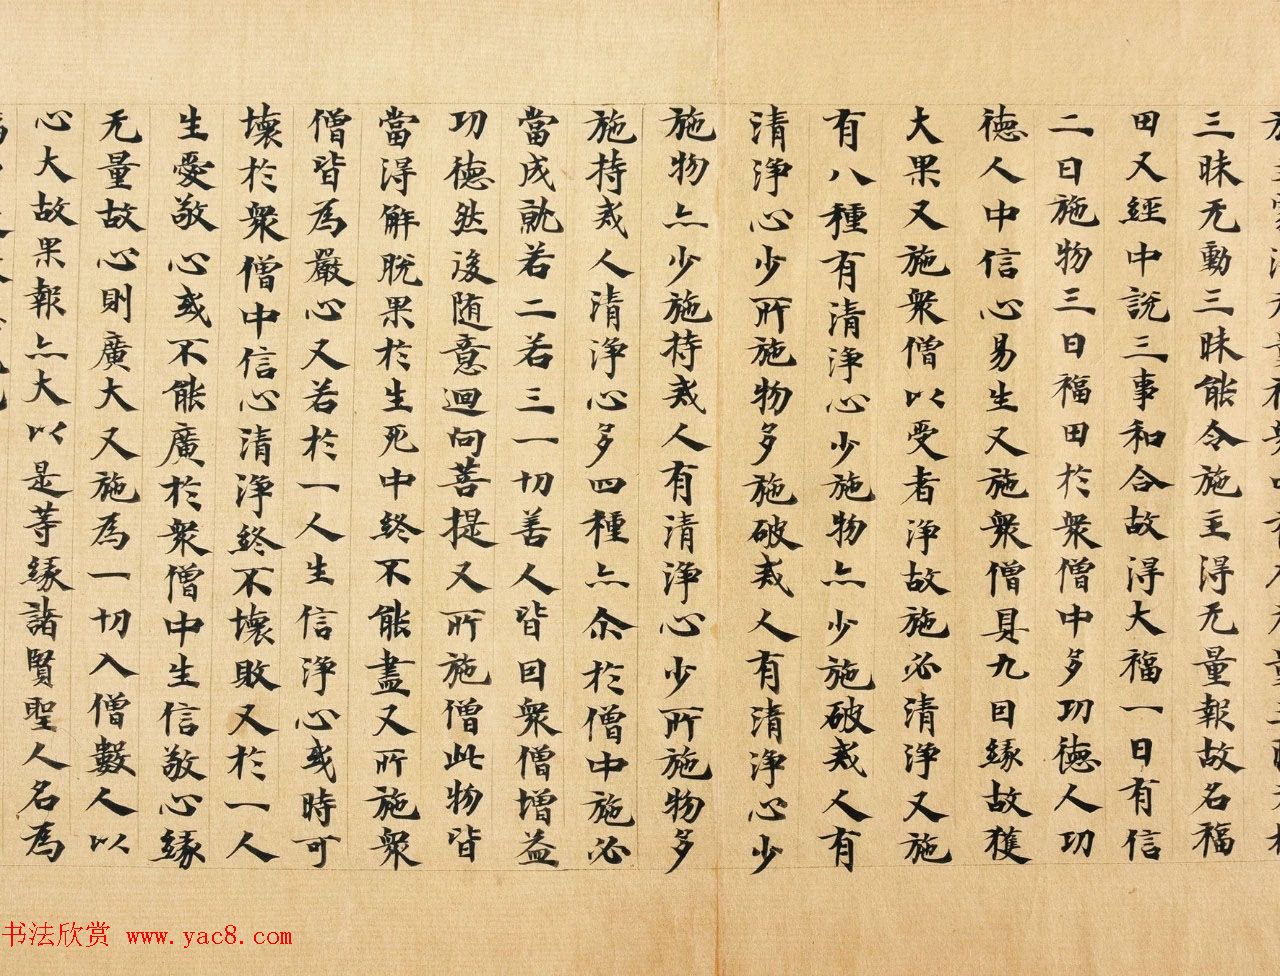 三昧无動三昧能令施主得无量報故名福
田又經中說三事和合故得大福一曰有信
二曰施物三曰福田於衆僧中多功德人功
德人中信心易生又施衆僧具九因緣故獲
大果又施衆僧以受者淨故施必清淨又施
有八種有清淨心少施物亦少施破戒人有
清淨心少所施物多施破戒人有清淨心少
施物亦少施持戒人有清淨心少所施物多
施持戒人清淨心多四種亦尒於僧中施必
當成就若二若三一切善人皆因衆僧增益
功德然後随意迴向菩提又所施僧此物皆
當得解脫果於生死中終不能盡又所施衆
僧皆為嚴心又若於一人生信淨心或時可
壞於衆僧中信心清淨終不壞敗又於一人
生愛敬心或不能廣於衆僧中生信敬心緣
无量故心則廣大又施為一切入僧數人以
心大故果報亦大以是等緣諸賢聖人名為
书法欣赏 www.yac8.com